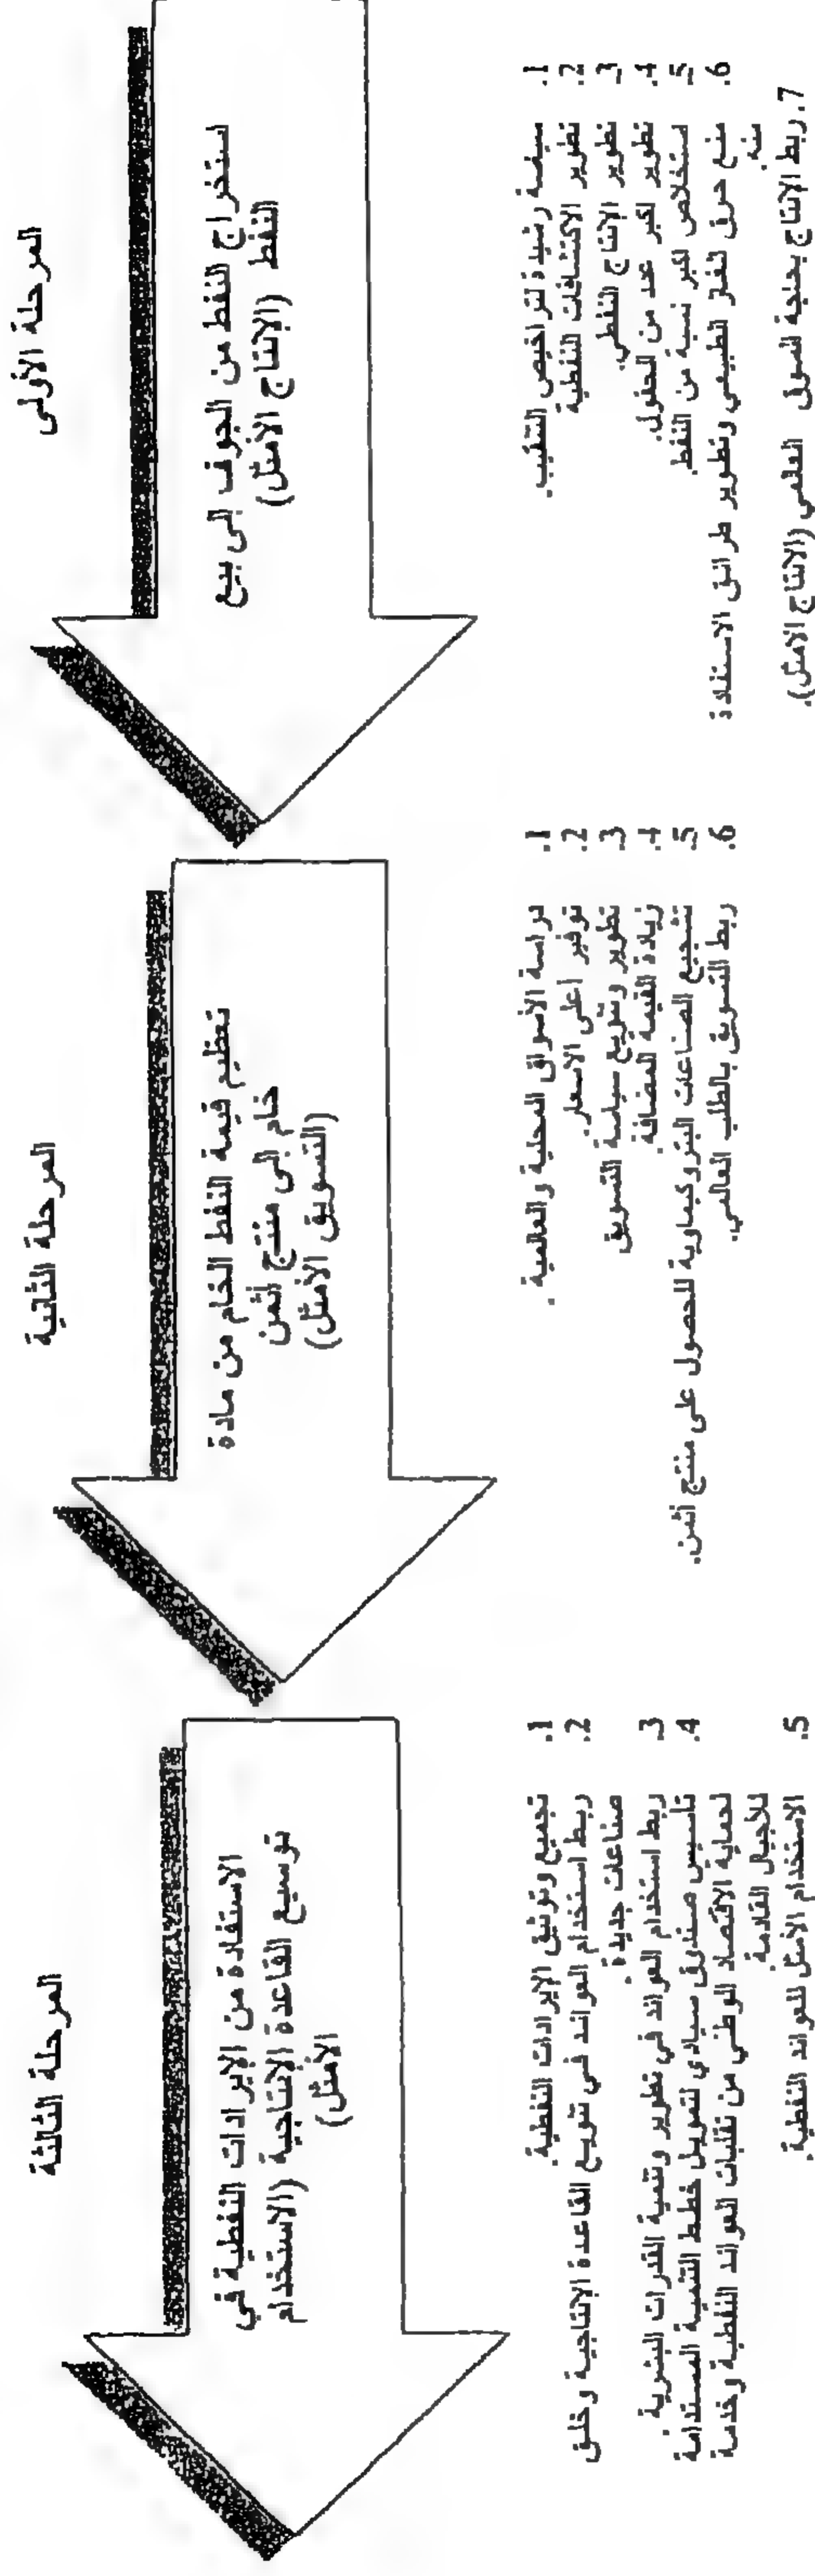 المرحلة الأولى
استخراج النفط من الجوف إلى بيع
النفط (الإنتاج الأمثل)
1. سياسة رشيدة لتراخيص التنقيب.
2. تطوير الاكتشافات النفطية
3. تطوير الإنتاج النفطي.
4. تطوير اكبر عدد من الحقول.
5. استخلاص اكبر نسبة من النفط.
6. منع حرق الغاز الطبيعي وتطوير طرائق الاستفادة
منه.
7. ربط الإنتاج بحاجة السوق العالمي (الانتاج الامثل).
المرحلة الثانية
تعظيم قيمة النفط الخام من مادة
خام إلى منتج أثمن
(التسويق الأمثل)
1. دراسة الأسواق المحلية والعالمية.
2. توفير اعلى الاسعار.
3. تطوير وتنويع سياسة التسويق
4. زيادة القيمة المضافة.
5. تشجيع الصناعات البتروكيماوية للحصول على منتج أثمن.
6. ربط التسويق بالطلب العالمي.
المرحلة الثالثة
الاستفادة من الإيرادات النفطية في
توسيع القاعدة الإنتاجية (الاستخدام
الأمثل)
1. تجميع وتوثيق الإيرادات النفطية.
2. ربط استخدام العوائد في تنويع القاعدة الإنتاجية وخلق
صناعات جديدة.
3. ربط استخدام العوائد في تطوير وتنمية القدرات البشرية.
4. تأسيس صندوق سيادي لتمويل خطط التنمية المستدامة
لحماية الاقتصاد الوطني من تقلبات العوائد النفطية وخدمة
للأجيال القادمة.
5. الاستخدام الأمثل للعوائد النفطية.